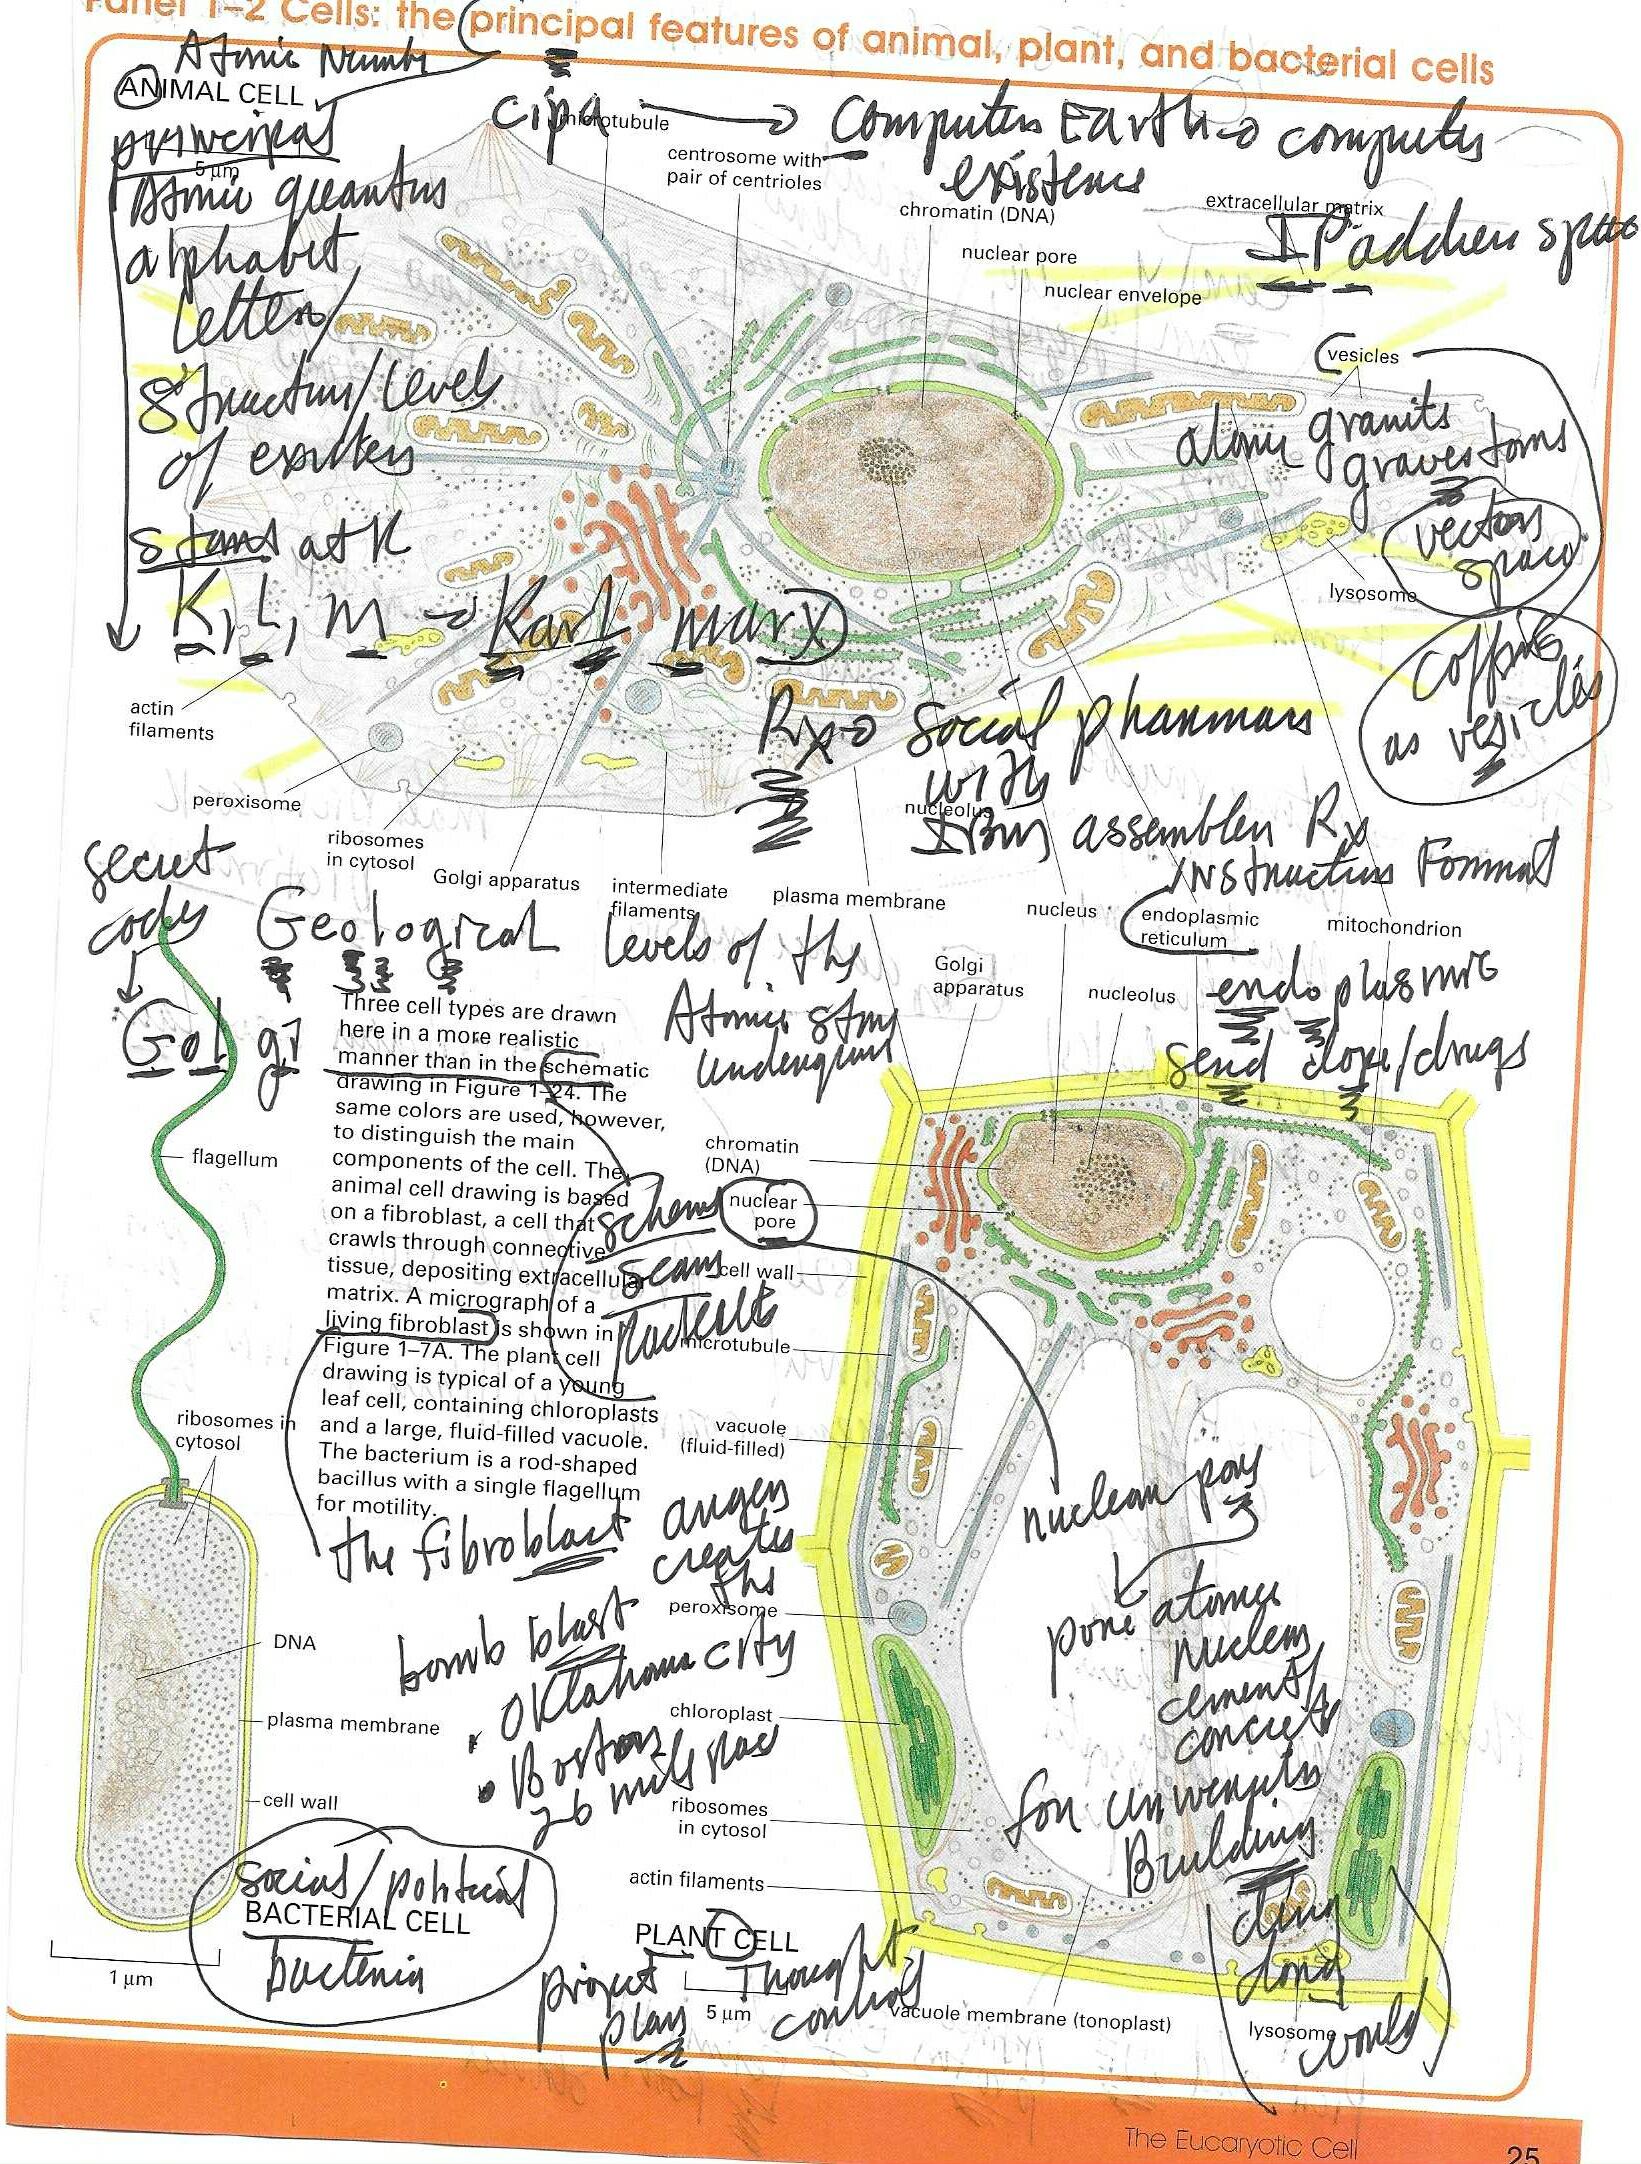 Panel 1–2 Cells: the principal features of animal, plant, and bacterial cells
Atomic Number
ANIMAL CELL
principal
5 μm
Atomic quantus
alphabet
letters/
structus/levels
of
starts at K
K, L, M → Karl marx
cipa → Computer Earth → computer
existence
microtubule
centrosome with
pair of centrioles
chromatin (DNA)
nuclear pore
nuclear envelope
extracellular matrix
IP address space
vesicles
atomic granits
gravestones
vectors
space
lysosome
coffins
as vesicles
Rx → social pharmacy
with
IBM assembler Rx
Instruction Format
actin
filaments
peroxisome
ribosomes
in cytosol
Golgi apparatus
intermediate
filaments
plasma membrane
nucleolus
nucleus
endoplasmic
reticulum
mitochondrion
secret
codes
Golgi
Geological levels of the
Atomic story
endo plasmic
send dope/drugs
Three cell types are drawn
here in a more realistic
manner than in the schematic
drawing in Figure 1–24. The
same colors are used, however,
to distinguish the main
components of the cell. The
animal cell drawing is based
on a fibroblast, a cell that
crawls through connective
tissue, depositing extracellular
matrix. A micrograph of a
living fibroblast is shown in
Figure 1–7A. The plant cell
drawing is typical of a young
leaf cell, containing chloroplasts
and a large, fluid-filled vacuole.
The bacterium is a rod-shaped
bacillus with a single flagellum
for motility.
schems
scams
the fibroblast angers
creates
the
bomb blast
• Oklahoma City
• Boston
26 mile race
flagellum
ribosomes in
cytosol
DNA
plasma membrane
cell wall
social/political
BACTERIAL CELL
bacteria
1 μm
Golgi
apparatus
nucleolus
chromatin
(DNA)
nuclear
pore
cell wall
microtubule
vacuole
(fluid-filled)
peroxisome
chloroplast
ribosomes
in cytosol
actin filaments
nuclear pore
pore atomic
nuclear
cement/
concrete
for university
Building
ding
dong
world
PLANT CELL
project
plans
Thought
control
5 μm
vacuole membrane (tonoplast)
lysosome
The Eucaryotic Cell
25